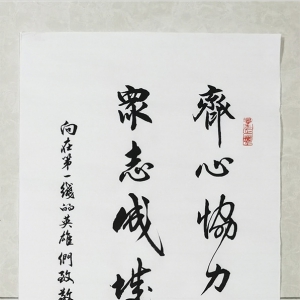 齊心協力
眾志成城
向在第一綫的英雄們致敬